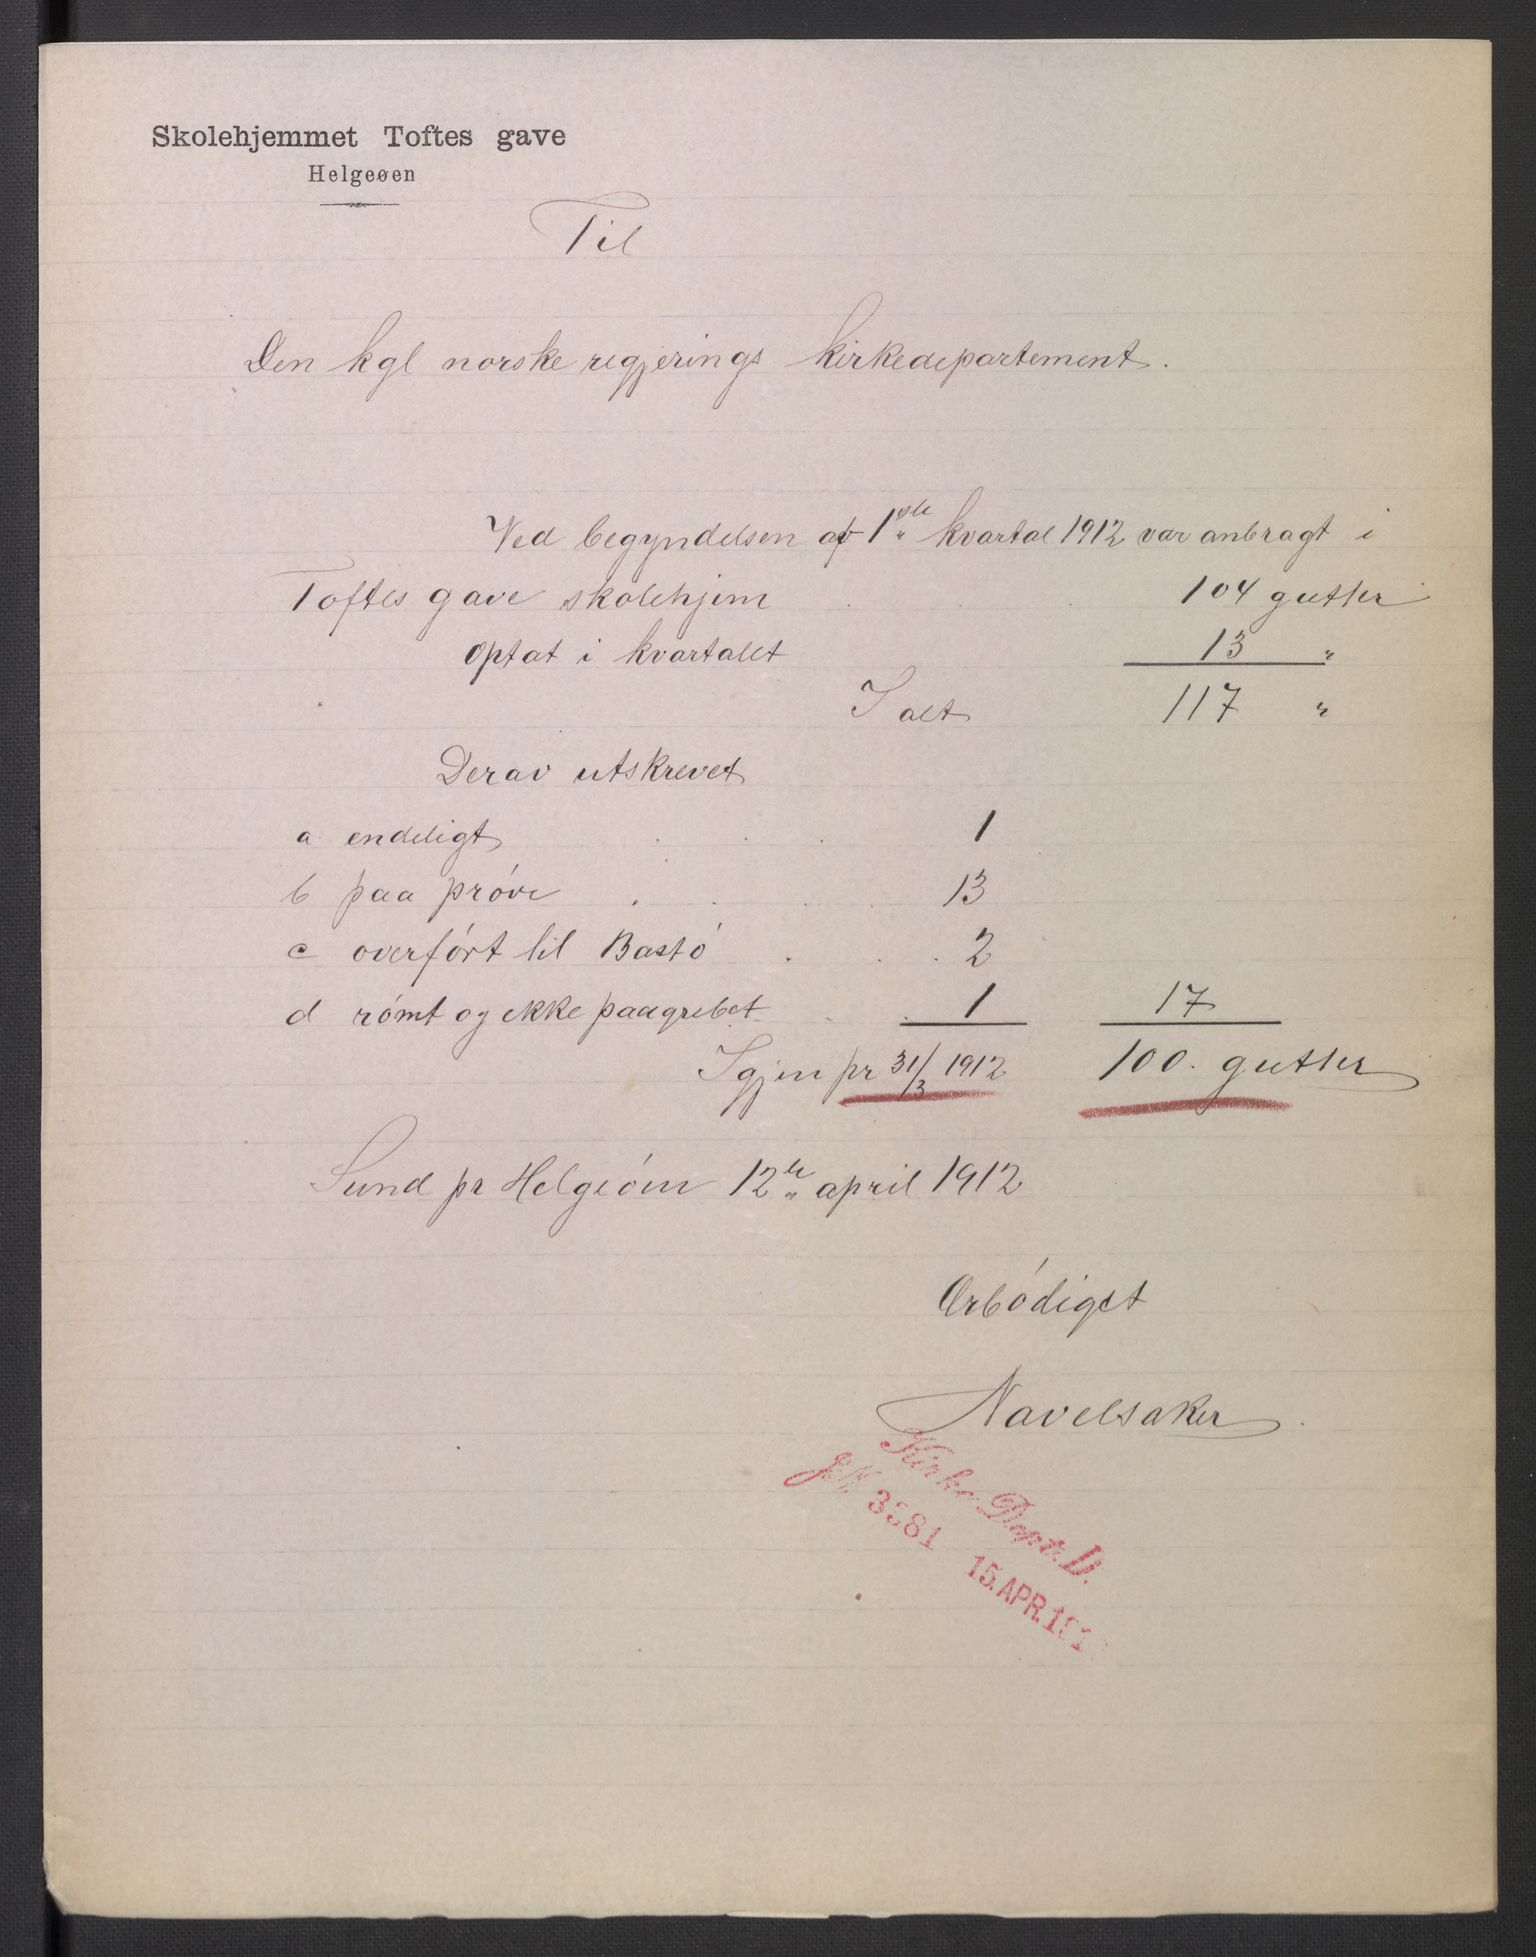 Skolehjemmet Toftes gave
Helgeøen
Til
Den kgl norske regjerings kirkedepartement.
Ved begyndelsen af 1ste kvartal 1912 var anbragt i
Toftes gave skolehjem 104 gutter
Optat i kvartalet 13 "
I alt 117 "
Derav utskrevet
a endeligt . . . 1
b paa prøve . . . 13
c overført til Bastø . . . 2
d rømt og ikke paagrebet . . . 1 17
Igjen pr 31/3 1912 100. gutter
Sund pr Helgeøen 12te april 1912
Ærbødigst
Navelsaker
Kirke-Dept. D.
JN. 3881 15. APR. 191